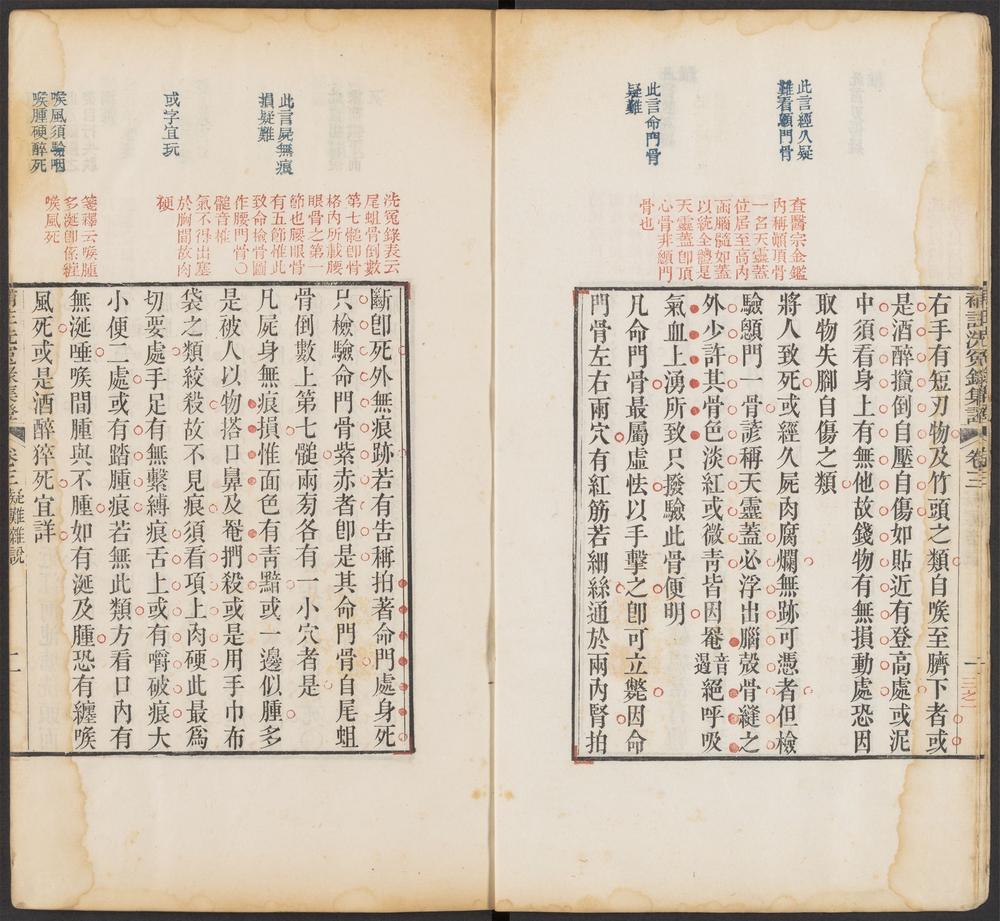 補註洗冤錄集證
卷三
一
三之二
此言經久疑
難看顖門骨
此言命門骨
疑難
查醫宗金鑑
內稱頂骨
一名天靈蓋
位居至高內
函腦髓如蓋
以統全體是
天靈蓋卽頂
心骨非顖門
骨也
右手有短刃物及竹頭之類自喉至臍下者或
是酒醉攧倒自壓自傷如貼近有登高處或泥
中須看身上有無他故錢物有無損動處恐因
取物失腳自傷之類
將人致死或經久屍肉腐爛無跡可憑者但檢
驗顖門一骨諺稱天靈蓋必浮出腦殼骨縫之
外少許其骨色淡紅或微靑皆因罨音遏絕呼吸
氣血上湧所致只撥驗此骨便明
凡命門骨最屬虛怯以手擊之卽可立斃因命
門骨左右兩穴有紅筋若細絲通於兩內腎拍
此言屍無痕
損疑難
或字宜玩
喉風須驗咽
喉腫硬醉死
洗冤錄表云
尾蛆骨倒數
第七髓卽骨
格內所載腰
眼骨之第一
節也腰眼骨
有五節惟此
致命檢骨圖
作腰門骨○
髓音椎
氣不得出塞
於胸間故肉
硬
箋釋云喉腫
多涎卽係纏
喉風死
斷卽死外無痕跡若有告稱拍著命門處身死
只檢驗命門骨紫赤者卽是其命門骨自尾蛆
骨倒數上第七髓兩旁各有一小穴者是
凡屍身無痕損惟面色有靑黯或一邊似腫多
是被人以物搭口鼻及罨捫殺或是用手巾布
袋之類絞殺故不見痕須看項上肉硬此最爲
切要處手足有無繫縛痕舌上或有嚼破痕大
小便二處或有踏腫痕若無此類方看口內有
無涎唾喉間腫與不腫如有涎及腫恐有纏喉
風死或是酒醉猝死宜詳
補註洗冤錄集證
卷三
疑難雜說
二